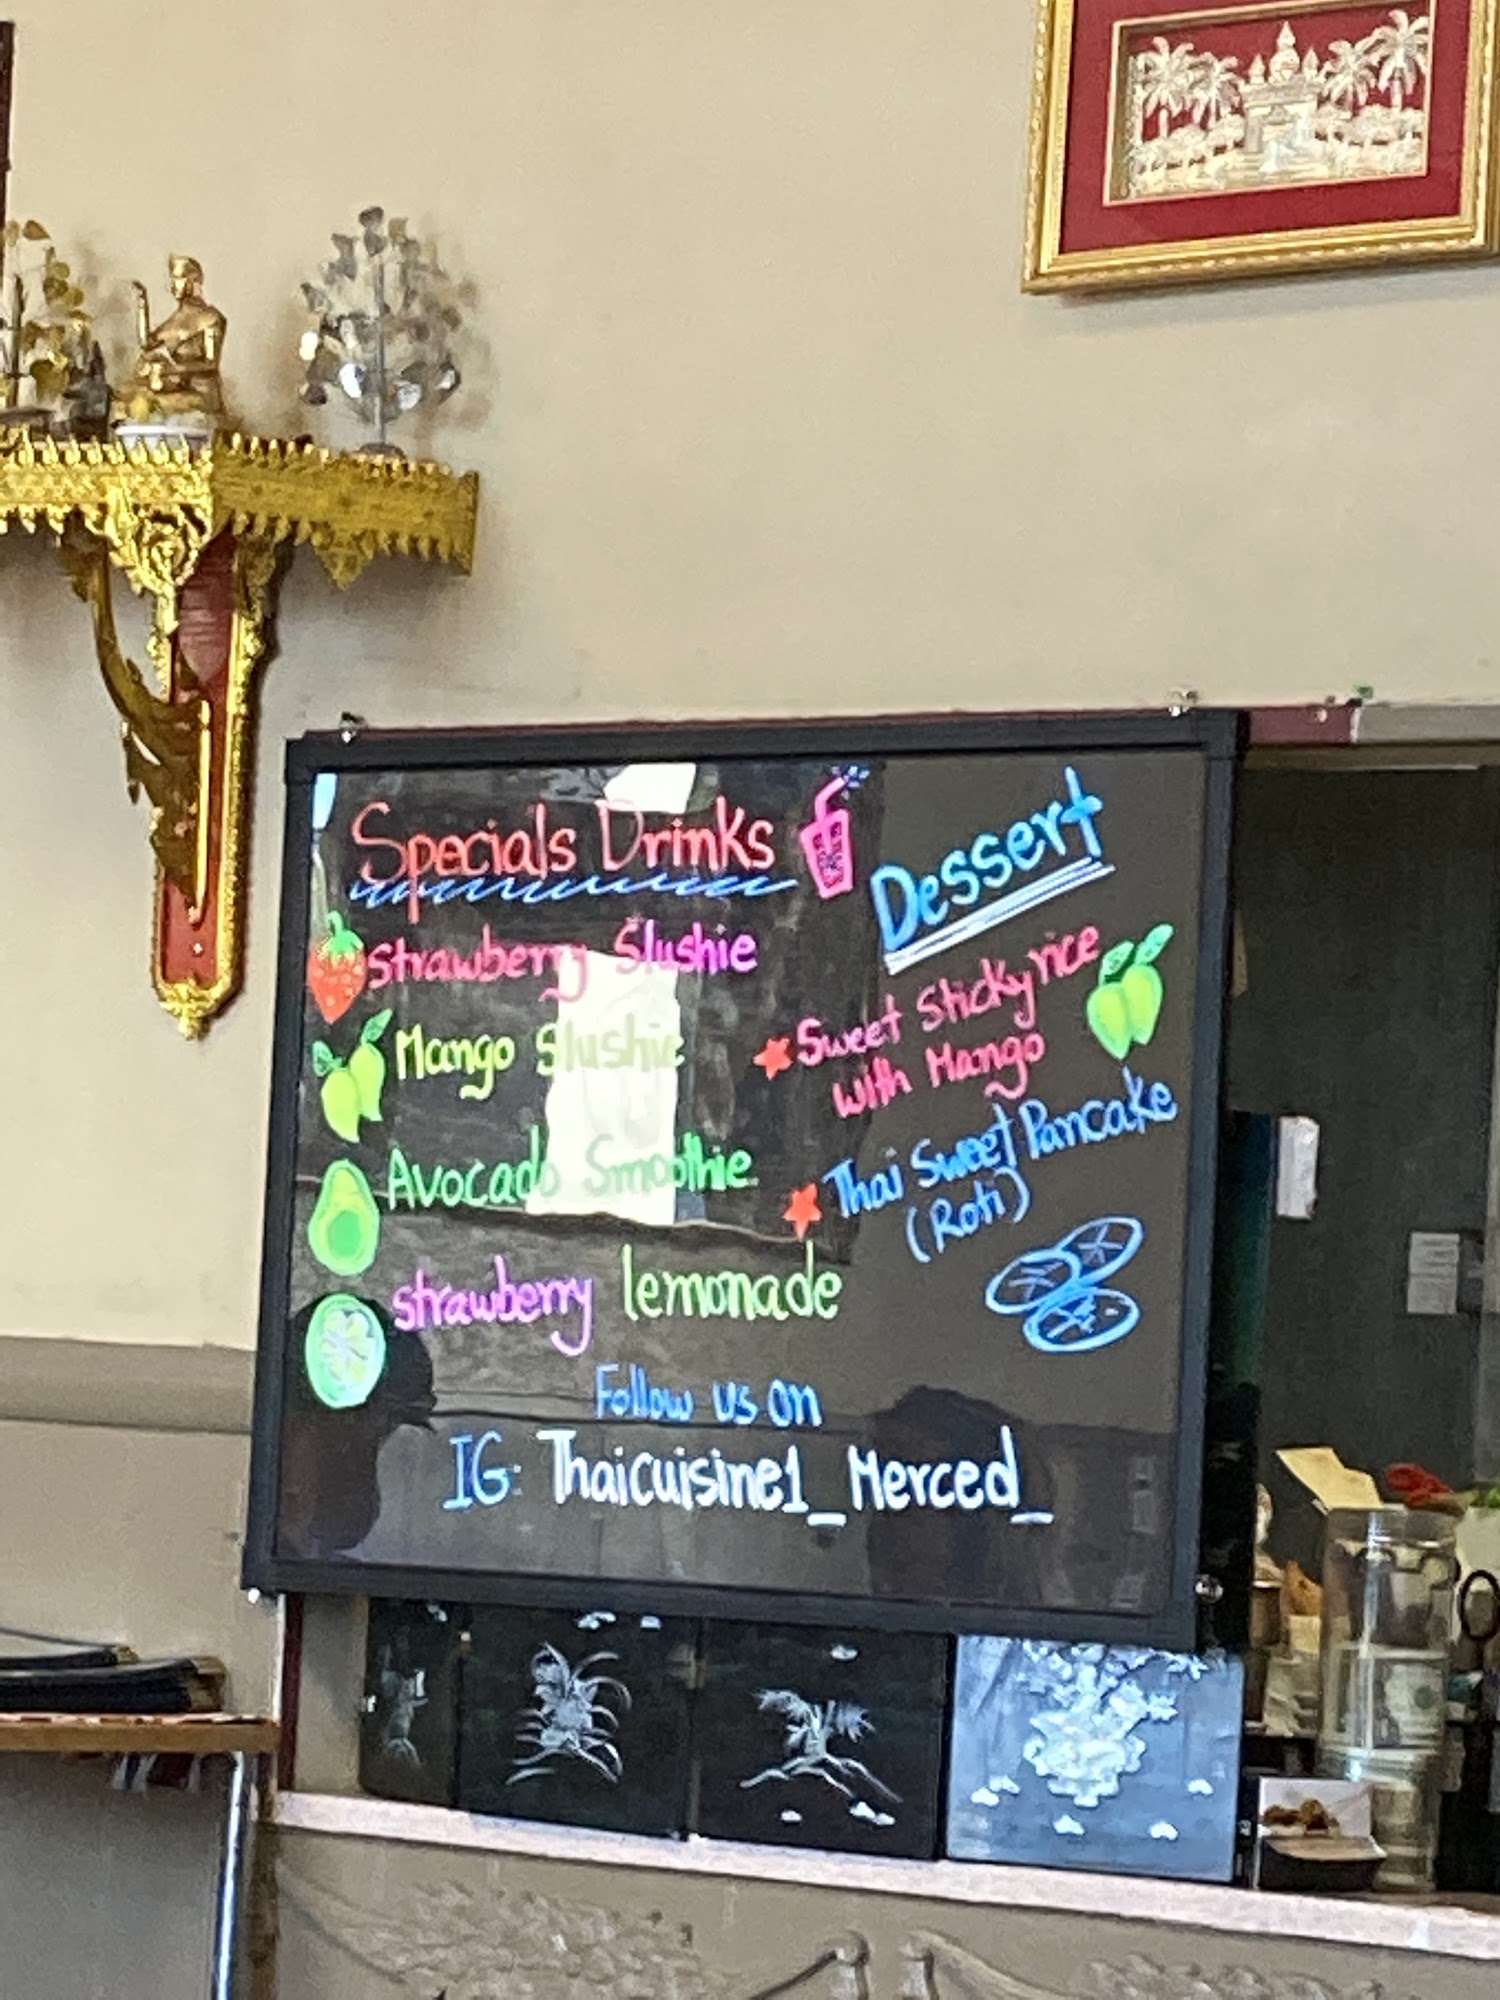 Specials Drinks
Strawberry Slushie
Mango Slushie
Avocado Smoothie
strawberry lemonade
Dessert
Sweet Sticky rice
with Mango
Thai Sweet Pancake
(Roti)
Follow us on
IG: Thaicuisine1_Merced_